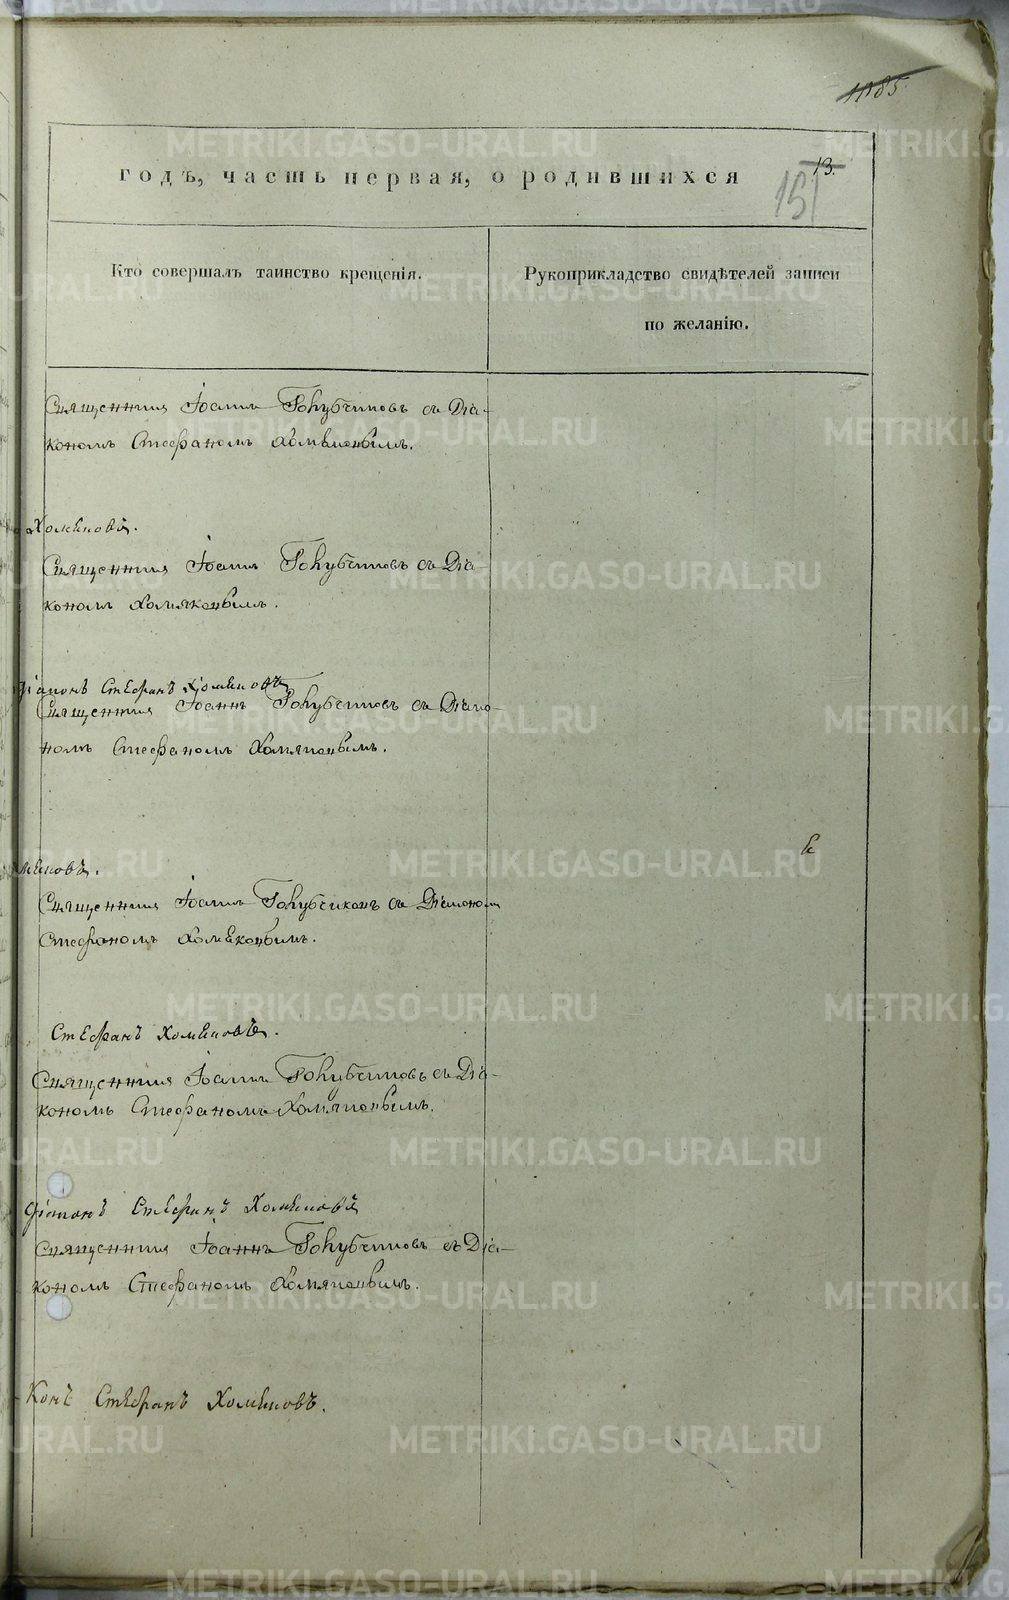 1185.
13.
151
годъ, часть первая, о родившихся
Кто совершалъ таинство крещенія.
Рукоприкладство свидѣтелей записи
по желанію.
Священникъ Іоаннъ Голубчиковъ съ Діа-
кономъ Стефаномъ Хомяковымъ.
Хомяковъ.
Священникъ Іоаннъ Голубчиковъ съ Діа-
кономъ Хомяковымъ.
Діаконъ Стефанъ Хомяковъ
Священникъ Іоаннъ Голубчиковъ съ Діако-
номъ Стефаномъ Хомяковымъ.
мяковъ.
Священникъ Іоаннъ Голубчиковъ съ Діакономъ
Стефаномъ Хомяковымъ.
Стефанъ Хомяковъ.
Священникъ Іоаннъ Голубчиковъ съ Діа-
кономъ Стефаномъ Хомяковымъ.
Діаконъ Стефанъ Хомяковъ
Священникъ Іоаннъ Голубчиковъ съ Діа-
кономъ Стефаномъ Хомяковымъ.
конъ Стефанъ Хомяковъ.
METRIKI.GASO-URAL.RU